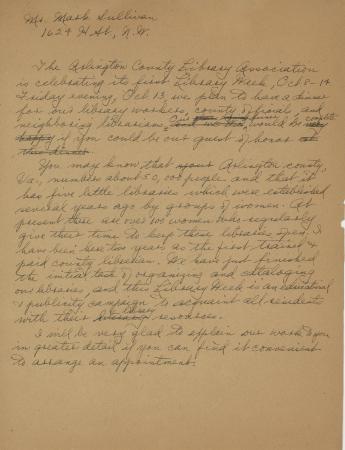 Mr. Mark Sullivan
1624 H St., N.W.
The Arlington County Library Association
is celebrating its first Library Week, Oct 8-14
Friday evening, Oct 13, we plan to have a dinner
for our library workers, county officials, and
neighboring librarians. Our would be complete
happy if you could be our guest of honor at
this dinner.
You may know that about Arlington county,
Va., numbers about 50,000 people, and that it
has five little libraries which were established
several years ago by groups of women. At
present there are over 100 women who regularly
give their time to keep these libraries open. I
have been here two years as the first trained &
paid county librarian. We have just finished
the initial task of organizing and cataloging
our libraries, and this Library Week is an educational
& publicity campaign to acquaint all residents
with their library resources.
I will be very glad to explain our work to you
in greater detail if you can find it convenient
to arrange an appointment.